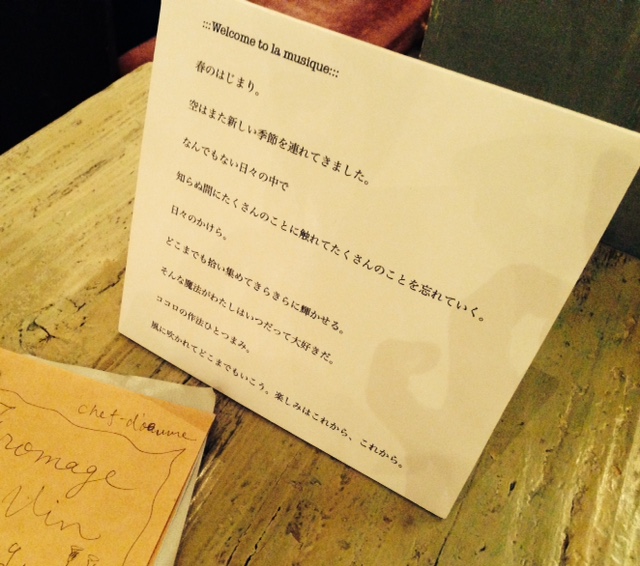 :::Welcome to la musique:::
春のはじまり。
空はまた新しい季節を連れてきました。
なんでもない日々の中で
知らぬ間にたくさんのことに触れてたくさんのことを忘れていく。
日々のかけら。
どこまでも拾い集めてきらきらに輝かせる。
そんな魔法がわたしはいつだって大好きだ。
ココロの作法ひとつまみ。
風に吹かれてどこまでもいこう。楽しみはこれから、これから。
chef-d'oeuvre
Fromage
Vin